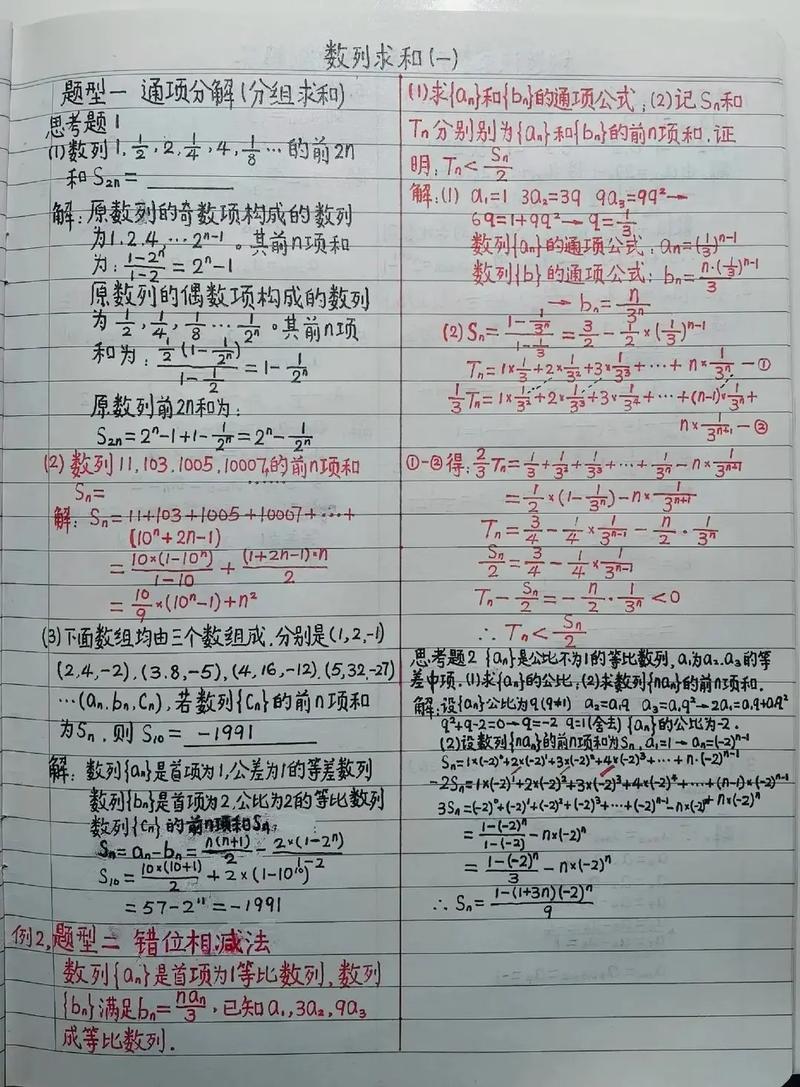 数列求和(一)
题型一 通项分解(分组求和)
思考题1
(1)数列1,1/2,2,1/4,4,1/8…的前2n
和S₂ₙ=________
解:原数列的奇数项构成的数列
为1.2.4,…2ⁿ⁻¹。其前n项和
为:(1-2ⁿ)/(1-2)=2ⁿ-1
原数列的偶数项构成的数列
为1/2,1/4,1/8…1/2ⁿ。其前n项
和为:(1/2(1-1/2ⁿ))/(1-1/2)=1-1/2ⁿ
原数列前2n和为:
S₂ₙ=2ⁿ-1+1-1/2ⁿ=2ⁿ-1/2ⁿ
(2)数列11,103.1005,10007,的前n项和
……
Sₙ=
解:Sₙ=11+103+1005+10007+…+
(10ⁿ+2n-1)
=(10×(1-10ⁿ))/(1-10)+((1+2n-1)·n)/2
=10/9×(10ⁿ-1)+n²
(3)下面数组均由三个数组成.分别是(1,2,-1)
(2,4,-2),(3.8,-5),(4,16,-12),(5,32,-27)
…(aₙ.bₙ,Cₙ),若数列{Cₙ}的前n项和
为Sₙ.则S₁₀=-1991
解:数列{aₙ}是首项为1,公差为1的等差数列
数列{bₙ}是首项为2,公比为2的等比数列
数列{Cₙ}的前n项和Sₙ.
Sₙ=aₙ-bₙ=n(n+1)/2-(2×(1-2ⁿ))/(1-2)
S₁₀=(10×(10+1))/2+2×(1-10¹⁰)
=57-2¹¹=-1991
例2,题型二 错位相减法
数列{aₙ}是首项为1等比数列,数列
{bₙ}满足bₙ=naₙ/3,已知a₁,3a₂,9a₃
成等比数列.
(1)求{aₙ}和{bₙ}的通项公式;(2)记Sₙ和
Tₙ分别别为{aₙ}和{bₙ}的前n项和.证
明:Tₙ<Sₙ/2
解:(1) a₁=1 3a₂=3q 9a₃=9q²→
6q=1+9q²→q=1/3
数列{aₙ}的通项公式:aₙ=(1/3)ⁿ⁻¹
数列{b}的通项公式:bₙ=(n·(1/3)ⁿ⁻¹)/3
→bₙ=n/3ⁿ
(2)Sₙ=(1-1/3ⁿ)/(1-1/3)=3/2-1/2×(1/3)ⁿ⁻¹
Tₙ=1×1/3+2×1/3²+3×1/3³+…+n×1/3ⁿ-①
1/3Tₙ=1×1/3²+2×1/3³+3×1/3⁴+…+(n-1)×1/3ⁿ+
n×1/3ⁿ⁺¹-②
①-②得:2/3Tₙ=1/3+1/3²+1/3³+…+1/3ⁿ-n×1/3ⁿ⁺¹
=1/2×(1-1/3ⁿ)-n×1/3ⁿ⁺¹
Tₙ=3/4-1/4×1/3ⁿ⁻¹-n/2·1/3ⁿ
Sₙ/2=3/4-1/4×1/3ⁿ⁻¹
Tₙ-Sₙ/2=-n/2·1/3ⁿ<0
∴Tₙ<Sₙ/2
思考题2 {aₙ}是公比不为1的等比数列,a₁为a₂.a₃的等
差中项.(1)求{aₙ}的公比;(2)求数列{naₙ}的前n项和.
解:设{aₙ}公比为q(q≠1) a₂=a₁q a₃=a₁q²→2a₁=a₁q+a₁q²
q²+q-2=0→q=-2 q=1(舍去){aₙ}的公比为-2.
(2)设数列{naₙ}的前n项和为Sₙ,a₁=1→aₙ=(-2)ⁿ⁻¹
Sₙ=1×(-2)⁰+2×(-2)¹+3×(-2)²+4×(-2)³+…+n·(-2)ⁿ⁻¹
-2Sₙ=1×(-2)¹+2×(-2)²+3×(-2)³+4×(-2)⁴+…+(n-1)×(-2)ⁿ⁻¹
3Sₙ=(-2)⁰+(-2)¹+(-2)²+(-2)³+…+(-2)ⁿ⁻¹-n×(-2)ⁿ+n×(-2)ⁿ
=(1-(-2)ⁿ)/(1-(-2))-n×(-2)ⁿ
=(1-(-2)ⁿ)/3-n×(-2)ⁿ
∴Sₙ=(1-(1+3n)(-2)ⁿ)/9